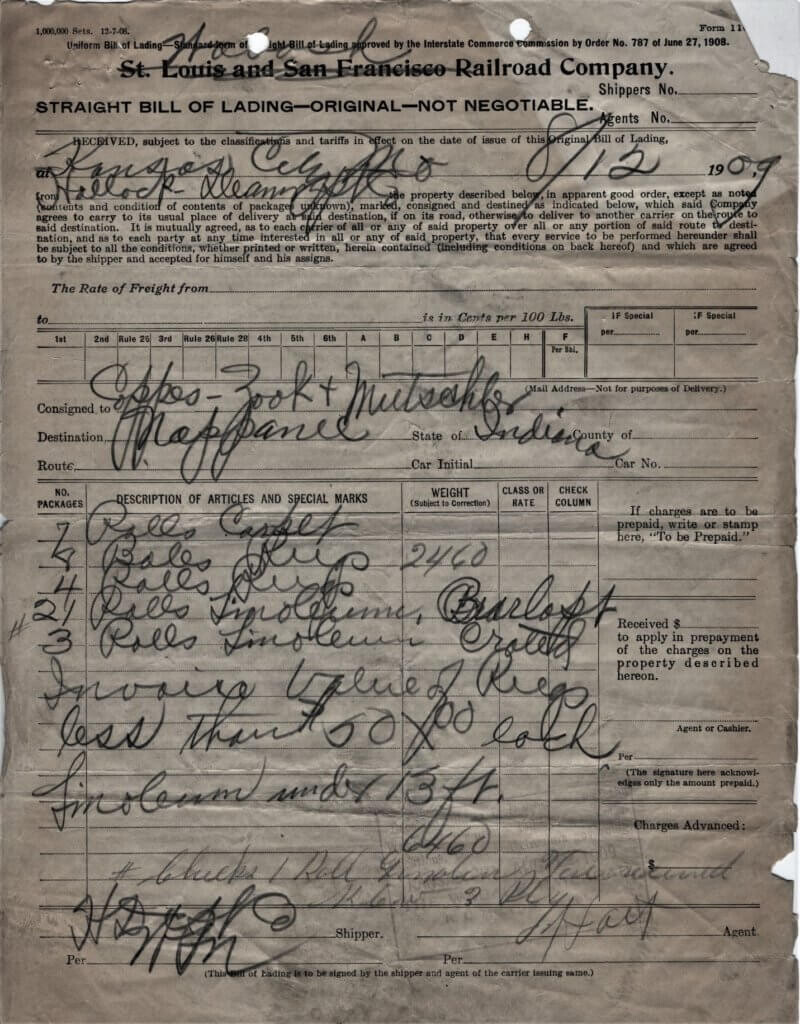 1,000,000 Sets. 12-7-08.
Form 11
Uniform Bill of Lading—Standard form of Straight Bill of Lading approved by the Interstate Commerce Commission by Order No. 787 of June 27, 1908.
Wabash
St. Louis and San Francisco Railroad Company.
Shippers No.
STRAIGHT BILL OF LADING—ORIGINAL—NOT NEGOTIABLE.
Agents No.
RECEIVED, subject to the classifications and tariffs in effect on the date of issue of this Original Bill of Lading,
at Kansas City Mo 8/12 1909,
from the property described below, in apparent good order, except as noted
(contents and condition of contents of packages unknown), marked, consigned and destined as indicated below, which said Company
agrees to carry to its usual place of delivery at said destination, if on its road, otherwise to deliver to another carrier on the route to
said destination. It is mutually agreed, as to each carrier of all or any of said property over all or any portion of said route to desti-
nation, and as to each party at any time interested in all or any of said property, that every service to be performed hereunder shall
be subject to all the conditions, whether printed or written, herein contained (including conditions on back hereof) and which are agreed
to by the shipper and accepted for himself and his assigns.
The Rate of Freight from
to is in Cents per 100 Lbs.
IF Special per IF Special per
1st 2nd Rule 25 3rd Rule 26 Rule 28 4th 5th 6th A B C D E H F Per Bbl.
(Mail Address—Not for purposes of Delivery.)
Consigned to Coppes-Zook & Mutschler
Destination, Nappanee State of Indiana County of
Route, Car Initial Car No.
NO. PACKAGES DESCRIPTION OF ARTICLES AND SPECIAL MARKS WEIGHT (Subject to Correction) CLASS OR RATE CHECK COLUMN
7 Rolls Carpet
8 Bales Rugs 2460
4 Rolls Rugs
#21 Rolls Linoleum, Burlapt
3 Rolls Linoleum Crated
Invoice Value of Rugs
less than 50 00 each
Linoleum under 13 ft.
6460
# Checks 1 Roll
If charges are to be
prepaid, write or stamp
here, "To be Prepaid."
Received $
to apply in prepayment
of the charges on the
property described
hereon.
Agent or Cashier.
Per
(The signature here acknowl-
edges only the amount prepaid.)
Charges Advanced:
$
Shipper. Agent
Per Per
(This Bill of Lading is to be signed by the shipper and agent of the carrier issuing same.)